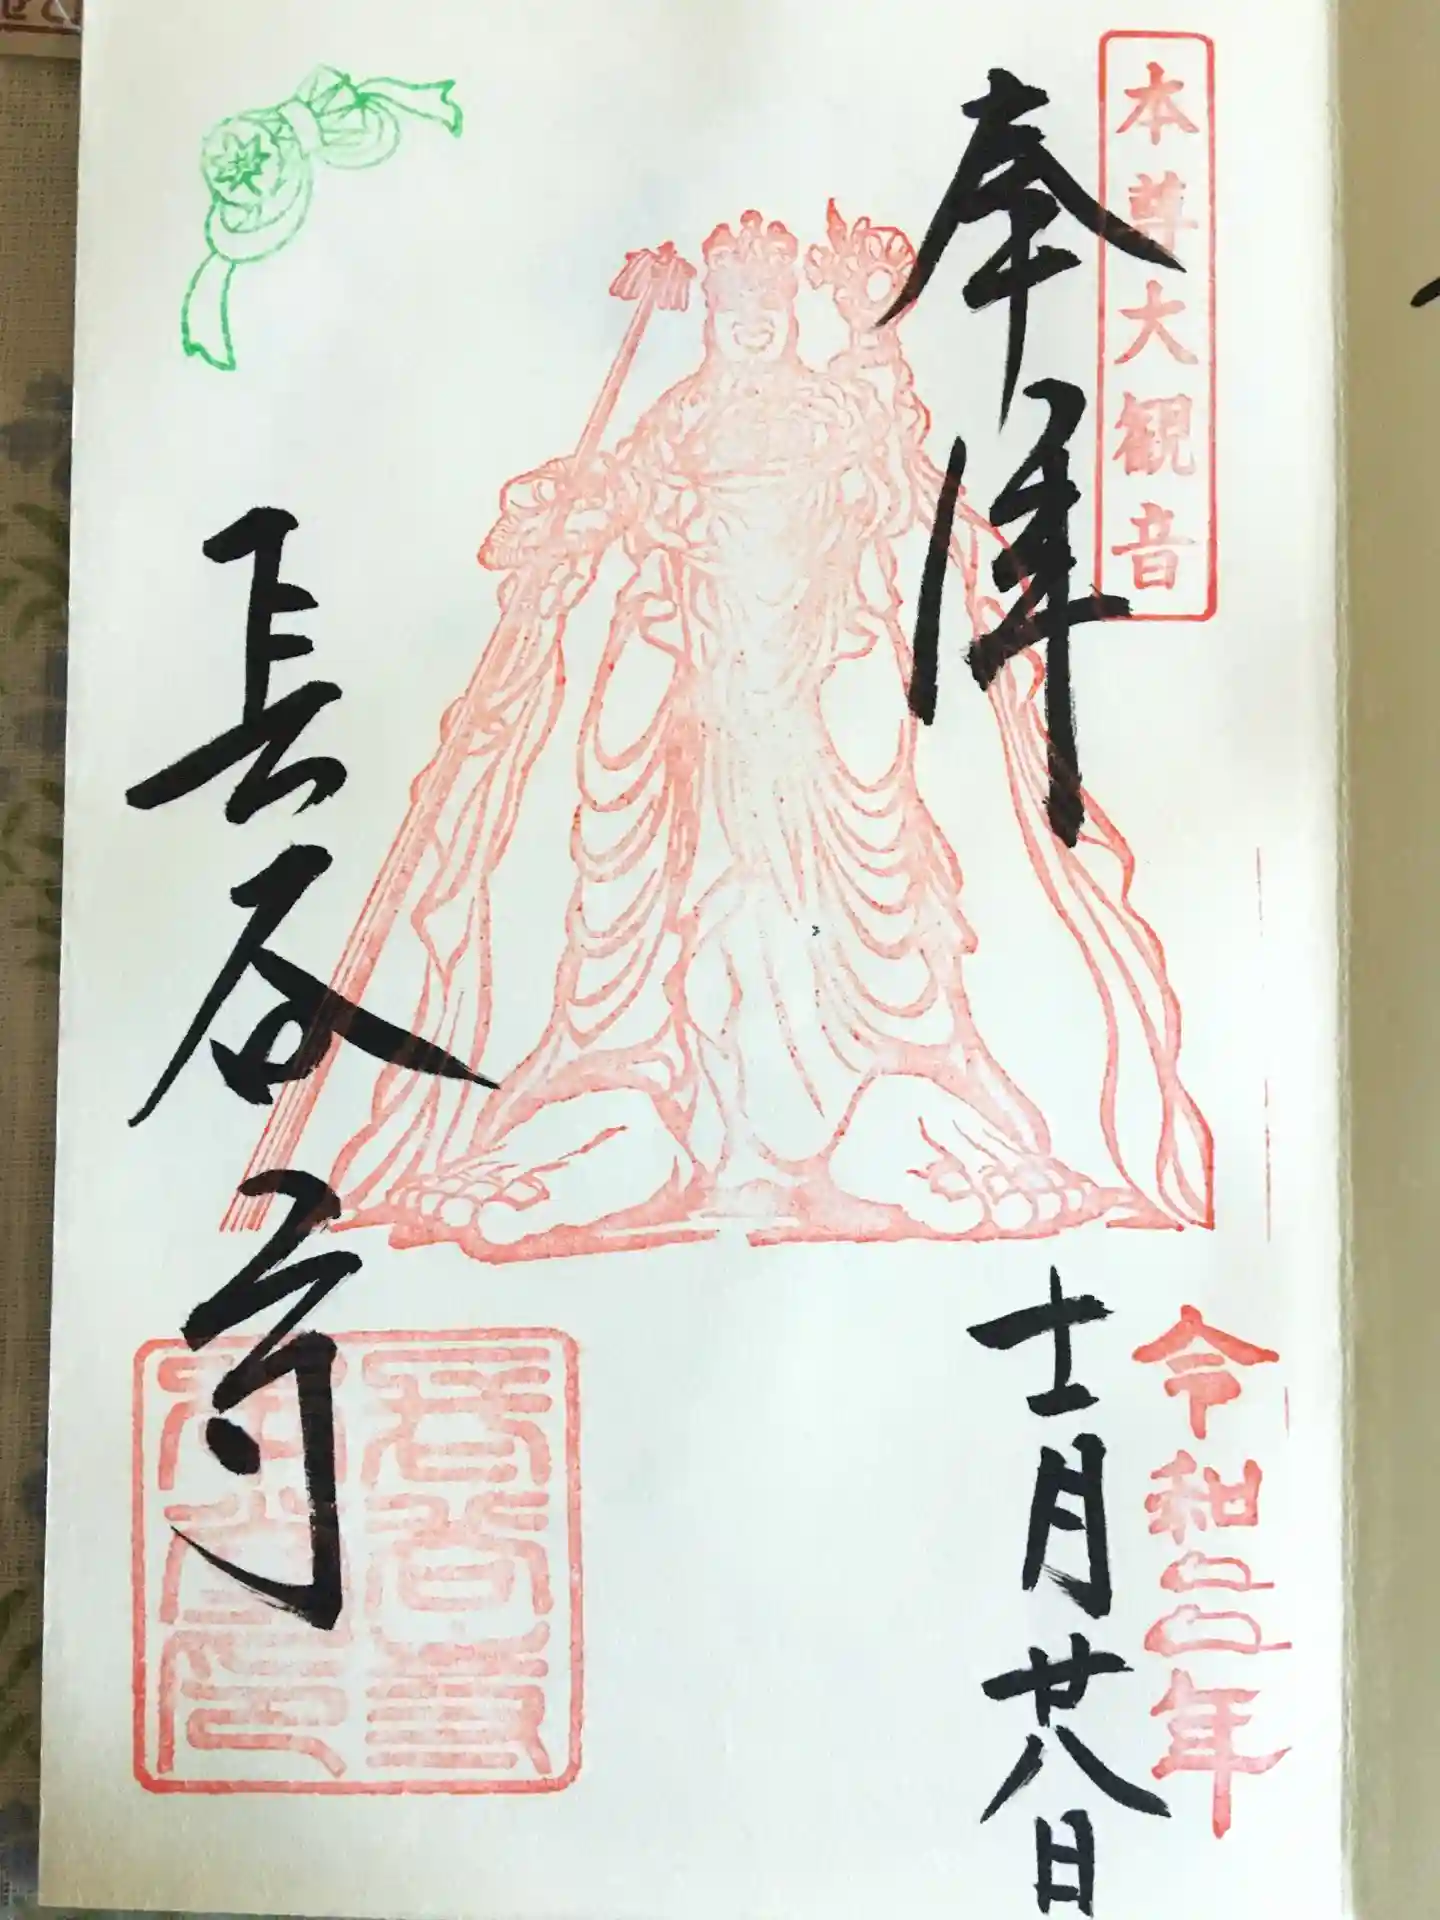 本尊大観音
奉拝
令和二年
十一月廿八日
長谷寺